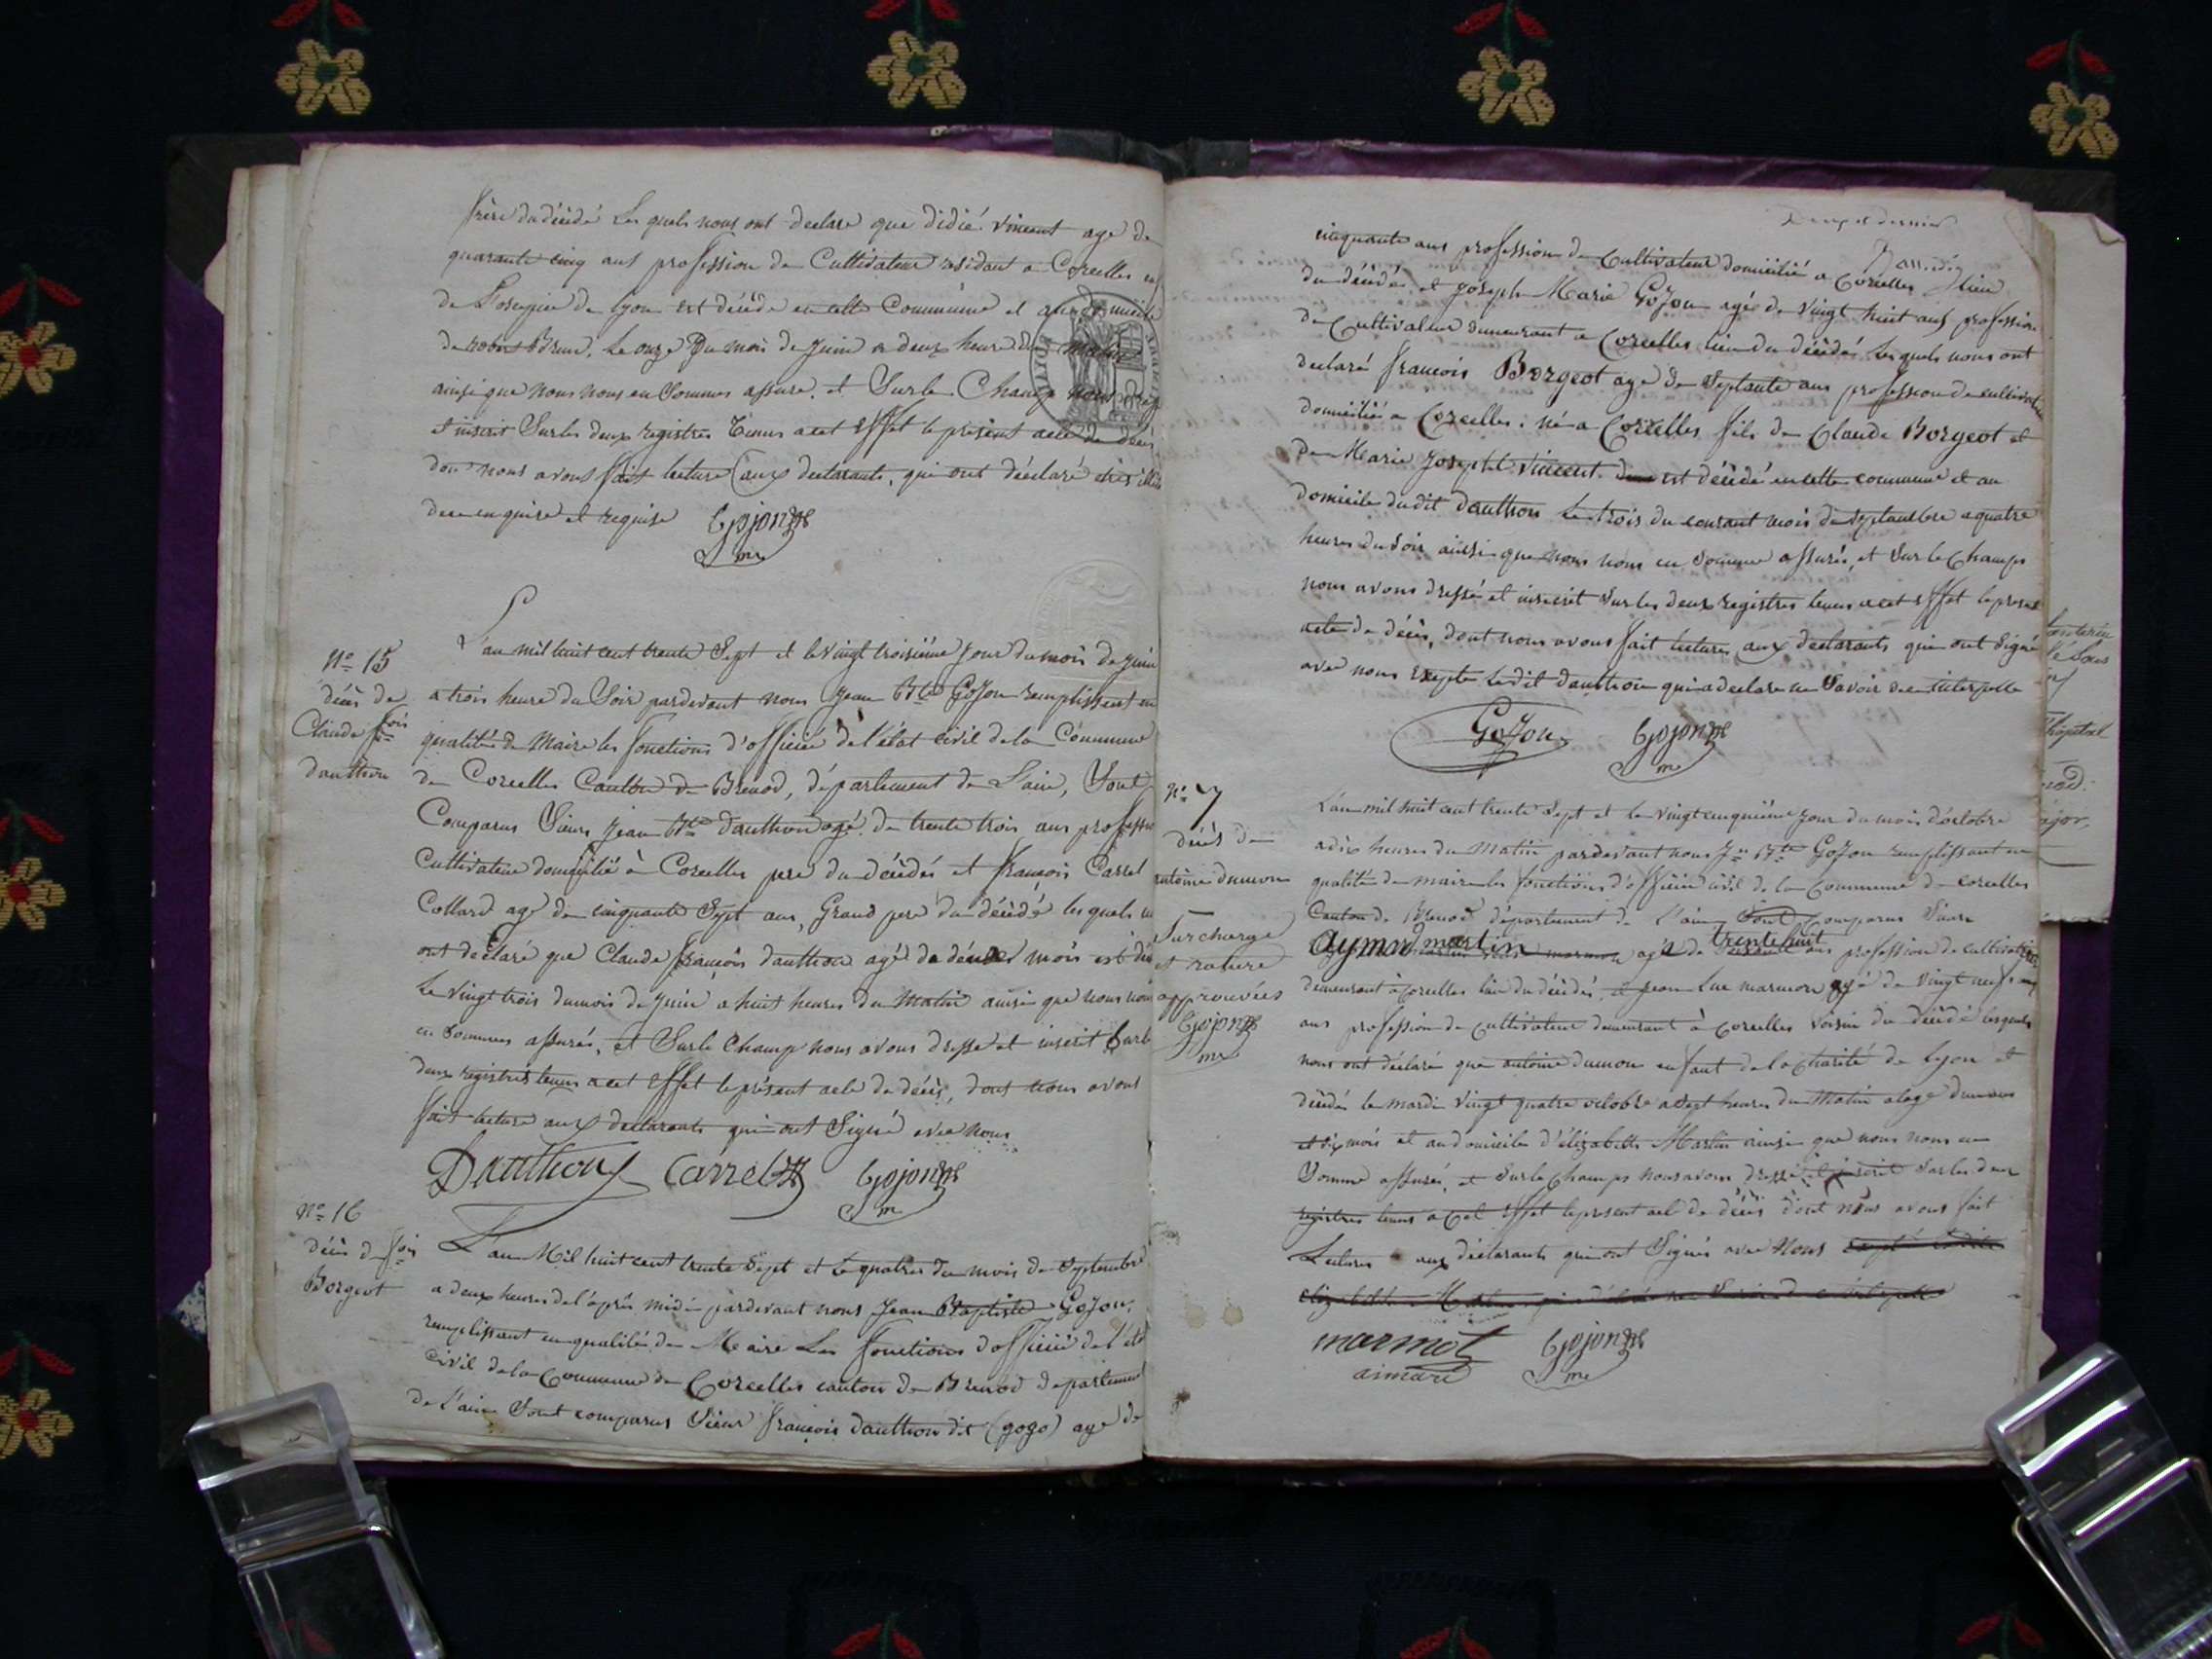 frère du décédé Les quels nous ont declare que didié vincent age de
quarante cinq ans profession de Cultivateur residant a Corcelles
de Lospice de lyon est décédé en cette Commune et au domicile
de Brun, Le onze Du mois de Juin a deux heure du matin
ainsi que nous nous en sommes assure. et Sur le Champ nous
et inscrit Sur les deux registres tenus a cet Effet le présent acte de décès
don nous avons fait lecture aux declarants, qui ont déclaré
de ce enquise et requise Gojon
me
L'an mil huit cent trente Sept et le vingt troisième jour du mois de juin
N° 15
décès de
Claude fois
dauthon
a trois heure du Soir pardevant nous Jean Bte GoJon remplissent en
qualité de Maire les fonctions d'officié de l'état civil de la Commune
de Corcelles Canton de Brenod, département de L'ain, Sont
Comparus Sieurs Jean Bte dauthon agé de trente trois ans profession
Cultivateur domicilié à Corcelles pere du décédés et françois Carrel
Collard age de cinquante Sept ans, Grand pere du décédé les quels
ont declaré que Claude françois dauthon agé de deux mois est
Le vingt trois du mois de juin a huit heures du Matin ainsi que nous nous
en sommes assurés, et Sur le Champ nous avons dressé et inscrit Sur le
deux registrés tenus a cet Effet le présent acte de décès, dont nous avons
fait lecture aux declarants qui ont Signé avec nous
Dauthon Carrel Gojon
me
N° 16
décès de fois
Borgeot
L'an Mil huit cent trente Sept et le quatres du mois de Septembre
a deux heures de l'après midi pardevant nous Jean Baptiste GoJon,
remplissant en qualité de Maire Les fonctions d'officié de l'état
civil de la Commune de Corcelles canton de Brenod departement
de l'ain Sont comparus Sieur françois dauthon dit (gogo) age de
cinquante ans profession de Cultivateur domicilié a Corcelles
du décédé, et Joseph Marie GoJon agé de vingt huit ans profession
de Cultivateur demeurant a Corcelles, du décédé Les quels nous ont
declaré françois Borgeot age de Septante ans profession de cultivateur
domicilié a Corcelles: né a Corcelles fils de Claude Borgeot et
de Marie Josephte Vincent. est décédé en cette commune et au
domicile du dit dauthon Le trois du courant mois de septembre a quatre
heures du Soir ainsi que nous nous en somme assurés, et Sur le Champs
nous avons dressé et inscrit Sur les deux registres tenus a cet Effet le present
acte de décès, dont nous avons fait lectures aux declarants qui ont Signé
avec nous Exepte Le dit dauthon qui a declare ne Savoir de ce
GoJon Gojon
me
N° 7
décès de
antoine dumon
Surcharge
et rature
approuvées
Gojon
me
L'an mil huit cent trente Sept et le vingt cinquième jour du mois d'octobre
a dix heures du Matin pardevant nous Jn Bte GoJon remplissant en
qualité de maire les fonctions d'officié civil de la Commune de corcelles
Canton de Brenod département de L'ain Sont Comparus Sieurs
aymard martin agé de trente huit ans profession de cultivateur
demeurant à corcelles du décédés, et jean Luc marmon agé de vingt neuf
ans profession de cultivateur demeurant à corcelles voisin du décédé lesquels
nous ont déclaré que antoine dumon enfant de la Charité de Lyon et
décédés le mardi vingt quatre octobre a Sept heures du Matin a lage
et dix mois et au domicile d'élizabeth Martin ainsi que nous nous en
Somme assurés, et Sur le Champs nous avons dressé et inscrit Sur les deux
registres tenus a cet Effet le present acte de décès dont nous avons fait
Lectures aux déclarants qui ont Signés avec Nous
elizabeth Martin
marmot Gojon
aimard me